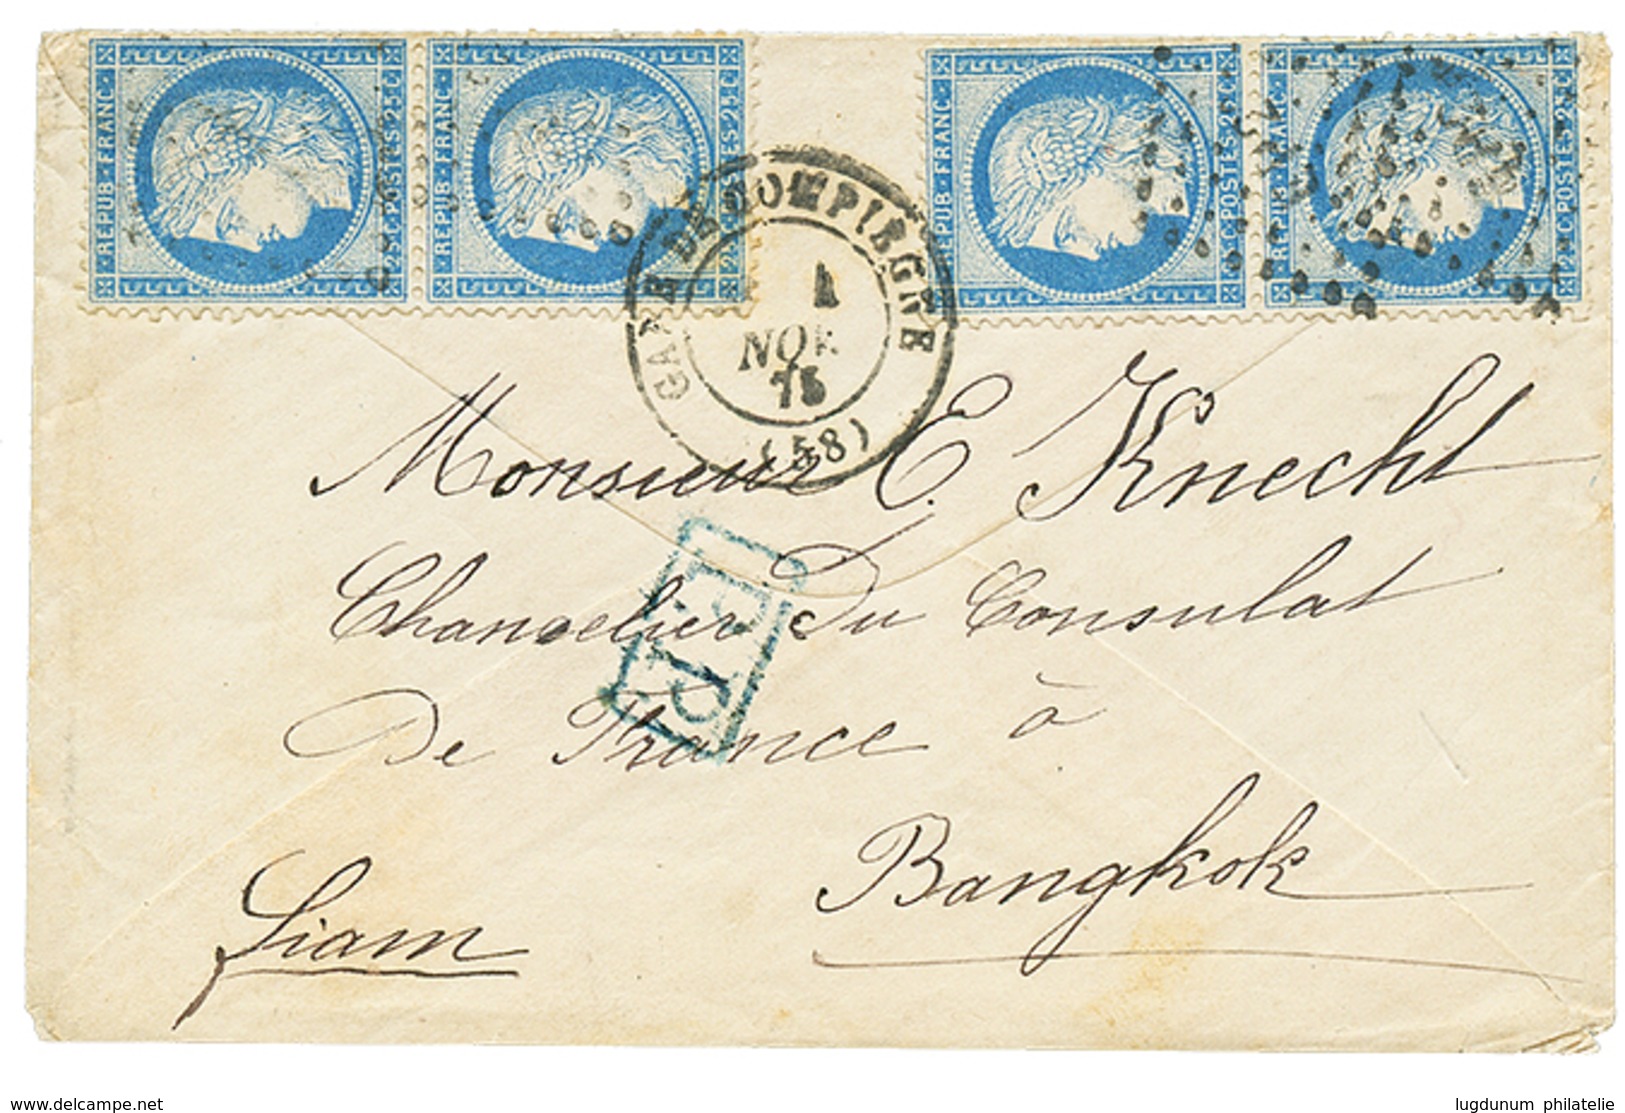 REPUB · FRANC · POSTES · 25 C
REPUB · FRANC ·
REPUB · FRANC · POSTES 25 C
REPUB · FRANC · POSTES 25 C
GARE DE COMPIEGNE
1
NOV.
75
(58)
Monsieur E. Knecht
P.P.
Chancelier Du Consulat
De France à
Bangkok
Siam
www.delcampe.net
lugdunum philatelie